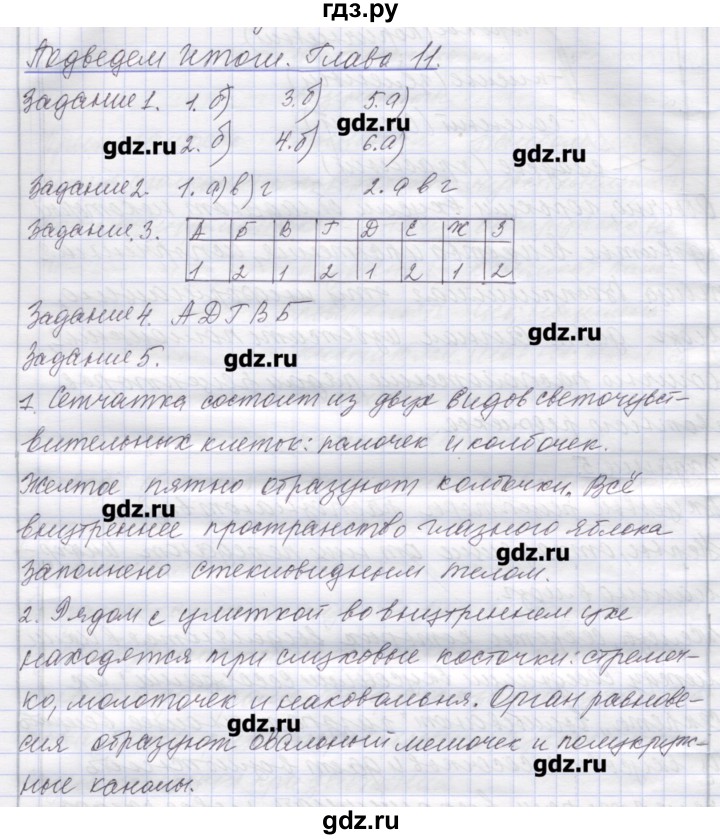 гдз.ру
Подведем итоги. Глава 11.
Задание 1. 1. б) 3. б) 5. а)
gdz.ru
gdz.ru 2. б) 4. б) 6. а) gdz.ru
Задание 2. 1. а) в) г 2. а в г
Задание. 3. А Б В Г Д Е Ж З
1 2 1 2 1 2 1 2
Задание 4. А Д Г В Б gdz.ru
Задание 5. gdz.ru
1. Сетчатка состоит из двух видов светочувст-
вительных клеток: палочек и колбочек.
Желтое пятно образуют колбочки. Всё
gdz.ru
внутреннее пространство глазного яблока
gdz.ru
заполнено стекловидным телом.
2. Рядом с улиткой во внутреннем ухе
находятся три слуховые косточки: стремеч-
ко, молоточек и наковальня. Орган равнове-
gdz.ru
сия образуют овальный мешочек и полукруж-
gdz.ru
ные каналы.
gdz.ru